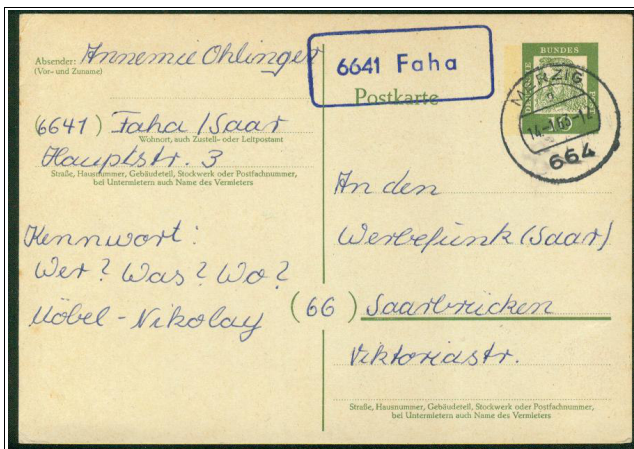 Absender: Annemie Ohlinger
(Vor- und Zuname)
(6641) Faha/Saar
Wohnort, auch Zustell- oder Leitpostamt
Hauptstr. 3
Straße, Hausnummer, Gebäudeteil, Stockwerk oder Postfachnummer,
bei Untermietern auch Name des Vermieters
Kennwort:
Wer? Was? Wo?
Möbel-Nikolay
6641 Faha
Postkarte
DEUTSCHE
BUNDES
POST
10
MERZIG
664
An den
Werbefunk (Saar)
(66) Saarbrücken
Viktoriastr.
Straße, Hausnummer, Gebäudeteil, Stockwerk oder Postfachnummer,
bei Untermietern auch Name des Vermieters